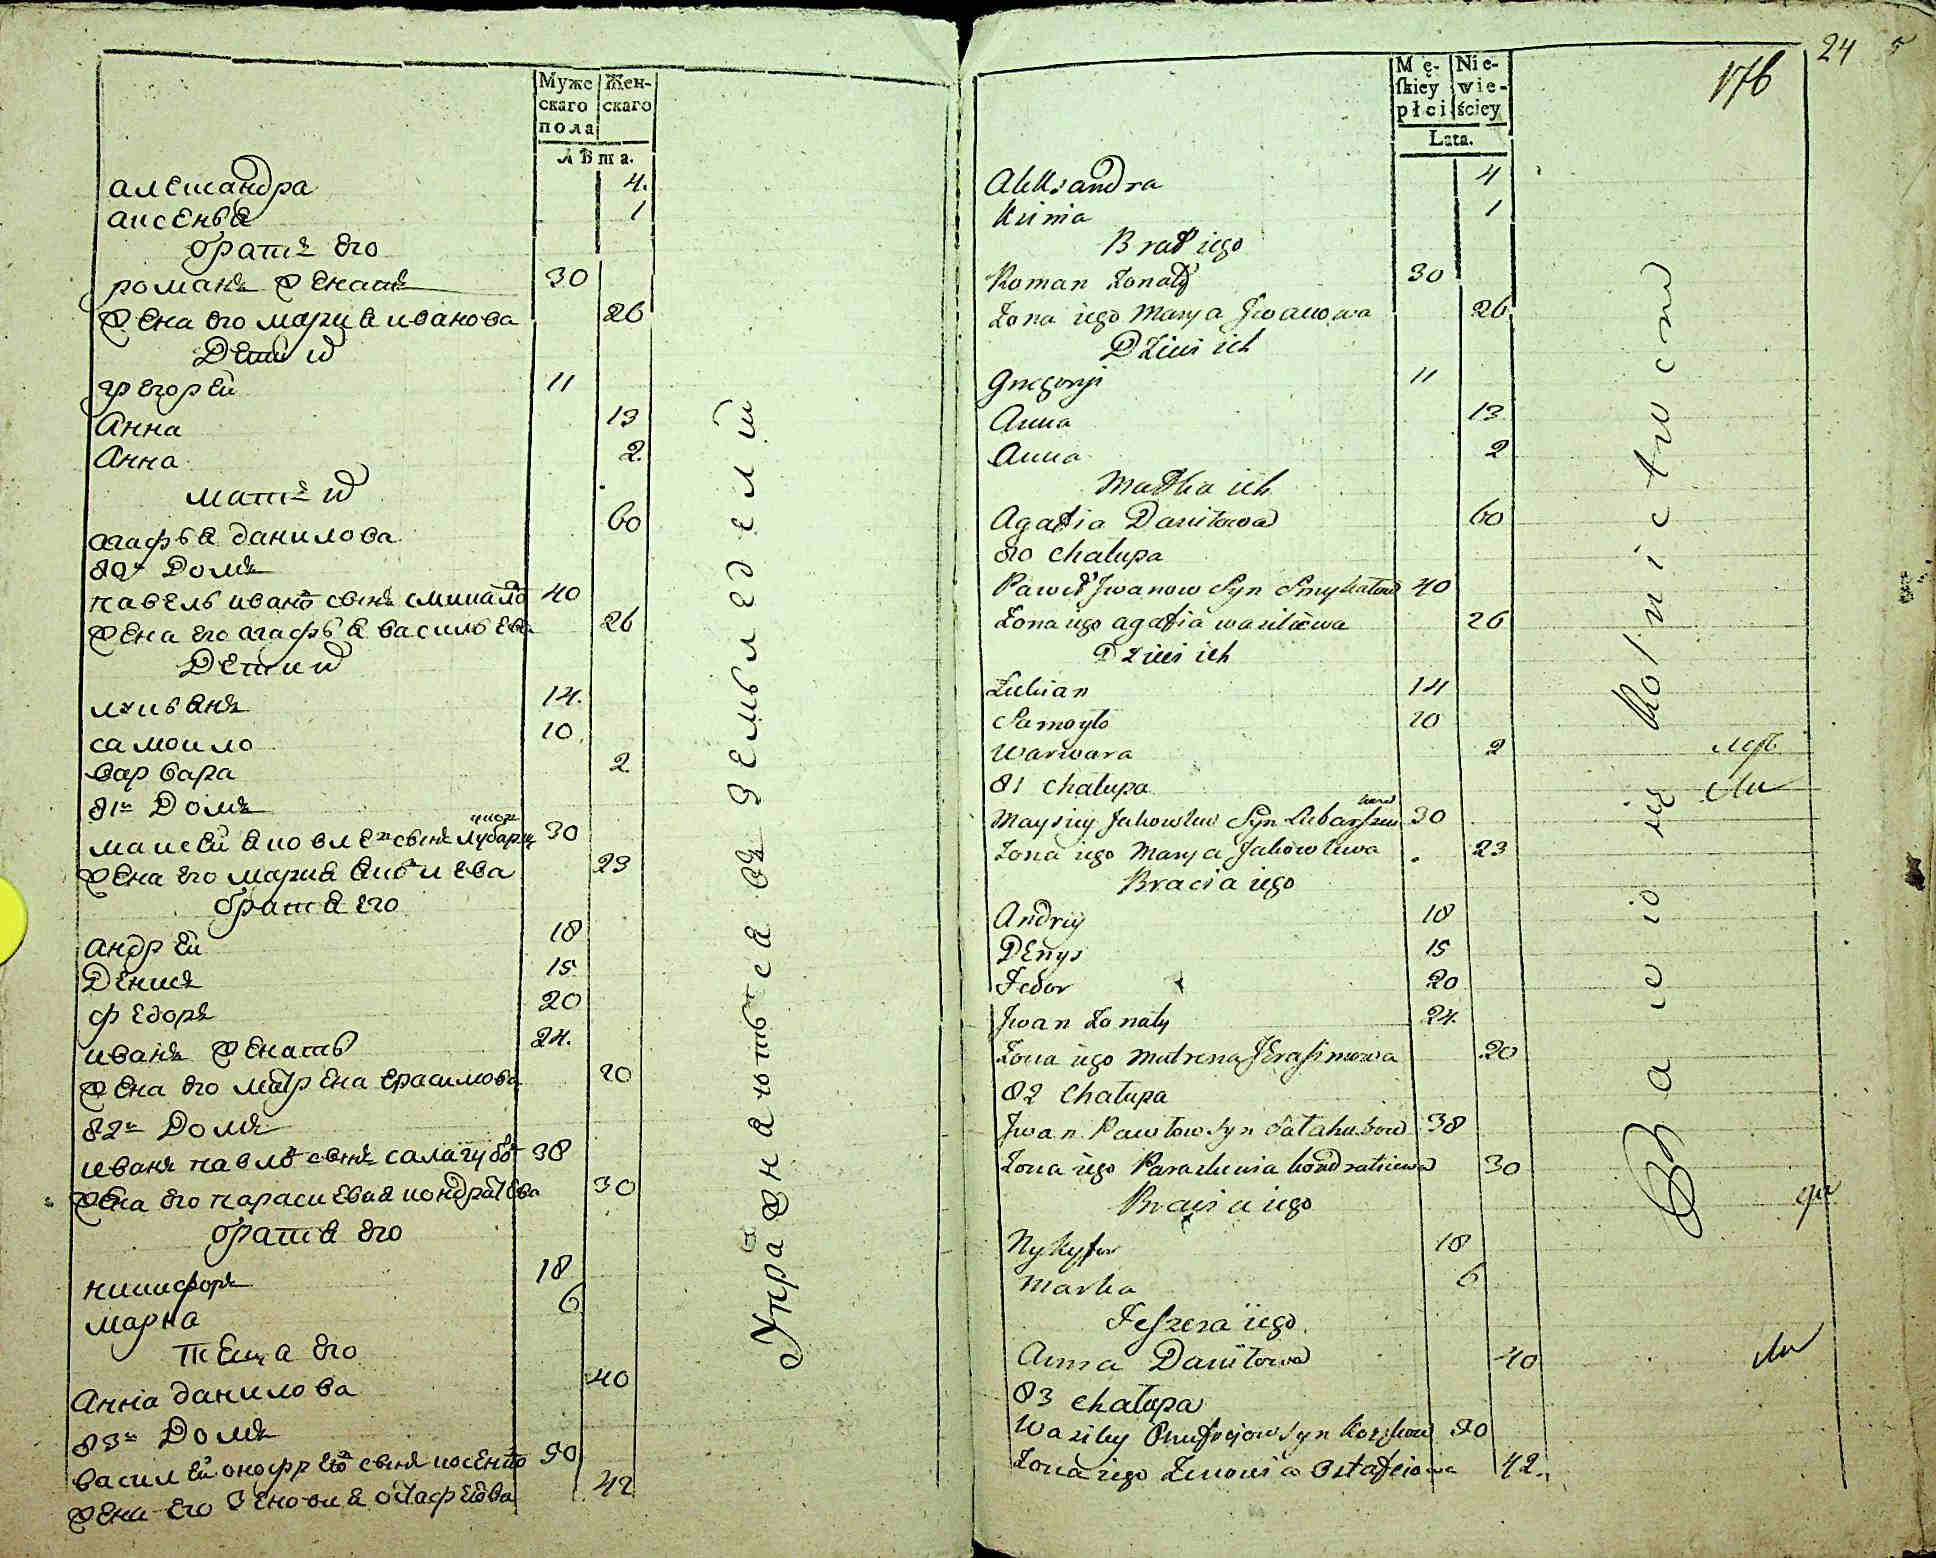 Муже Жен-
скаго скаго
пола
Лѣта.
александра 4.
аксенья 1
братъ его
романъ женатъ 30
жена его мария иванова 26
дети их
грегорей 11
Анна 13
Анна 2.
мать их
агафья данилова 60
80ъ домъ
павель иванов сынъ 40
жена его агафья васильева 26
дети их
лукьянъ 14.
самоило 10
варвара 2
81ъ домъ
моисей яковлев сынъ 30
жена его мария 23
братя его
андрей 18
денисъ 15
федоръ 20
иванъ женатъ 24.
жена его матрена ерасимова 20
82ъ домъ
иванъ павлов сынъ салагубов 38
жена его параскевия кондратева 30
братя его
никифоръ 18
марка 6
теща его
Анна данилова 40
83ъ домъ
василей онофреев сынъ 50
жена его зеновия остафеева 42
Упражняються въ земьледелии
24
176
Mę- Nie-
skiey wie-
płci ściey
Lata.
Aleksandra 4
Ksinia 1
Brat iego
Roman Żonaty 30
Żona iego Marya Jwanowa 26
Dzieci ich
Gregoryi 11
Anna 13
Anna 2
Matka ich
Agafia Daniłowa 60
80 Chałupa
Paweł Jwanow Syn 40
Żona iego agafia wasiliewa 26
Dzieci ich
Łukian 14
Samoyło 10
Warwara 2
81 Chałupa
Moysiey Jakowlew Syn 30
Żona iego Marya Jakowlewa 23
Bracia iego
Andriy 18
Denys 15
Fedor 20
Jwan Żonaty 24
Żona iego Matrena Jerasimowa 20
82 Chałupa
Jwan Pawłow Syn Sałahubow 38
Żona iego Paraskewia kondratiewa 30
Bracia iego
Nykyfor 18
Marka 6
Teszcza iego
Anna Daniłowa 40
83 Chałupa
Wasiley Onufrejow Syn 50
Żona iego Zenowia Ostafeiowa 42.
Bawio się Rolnictwem